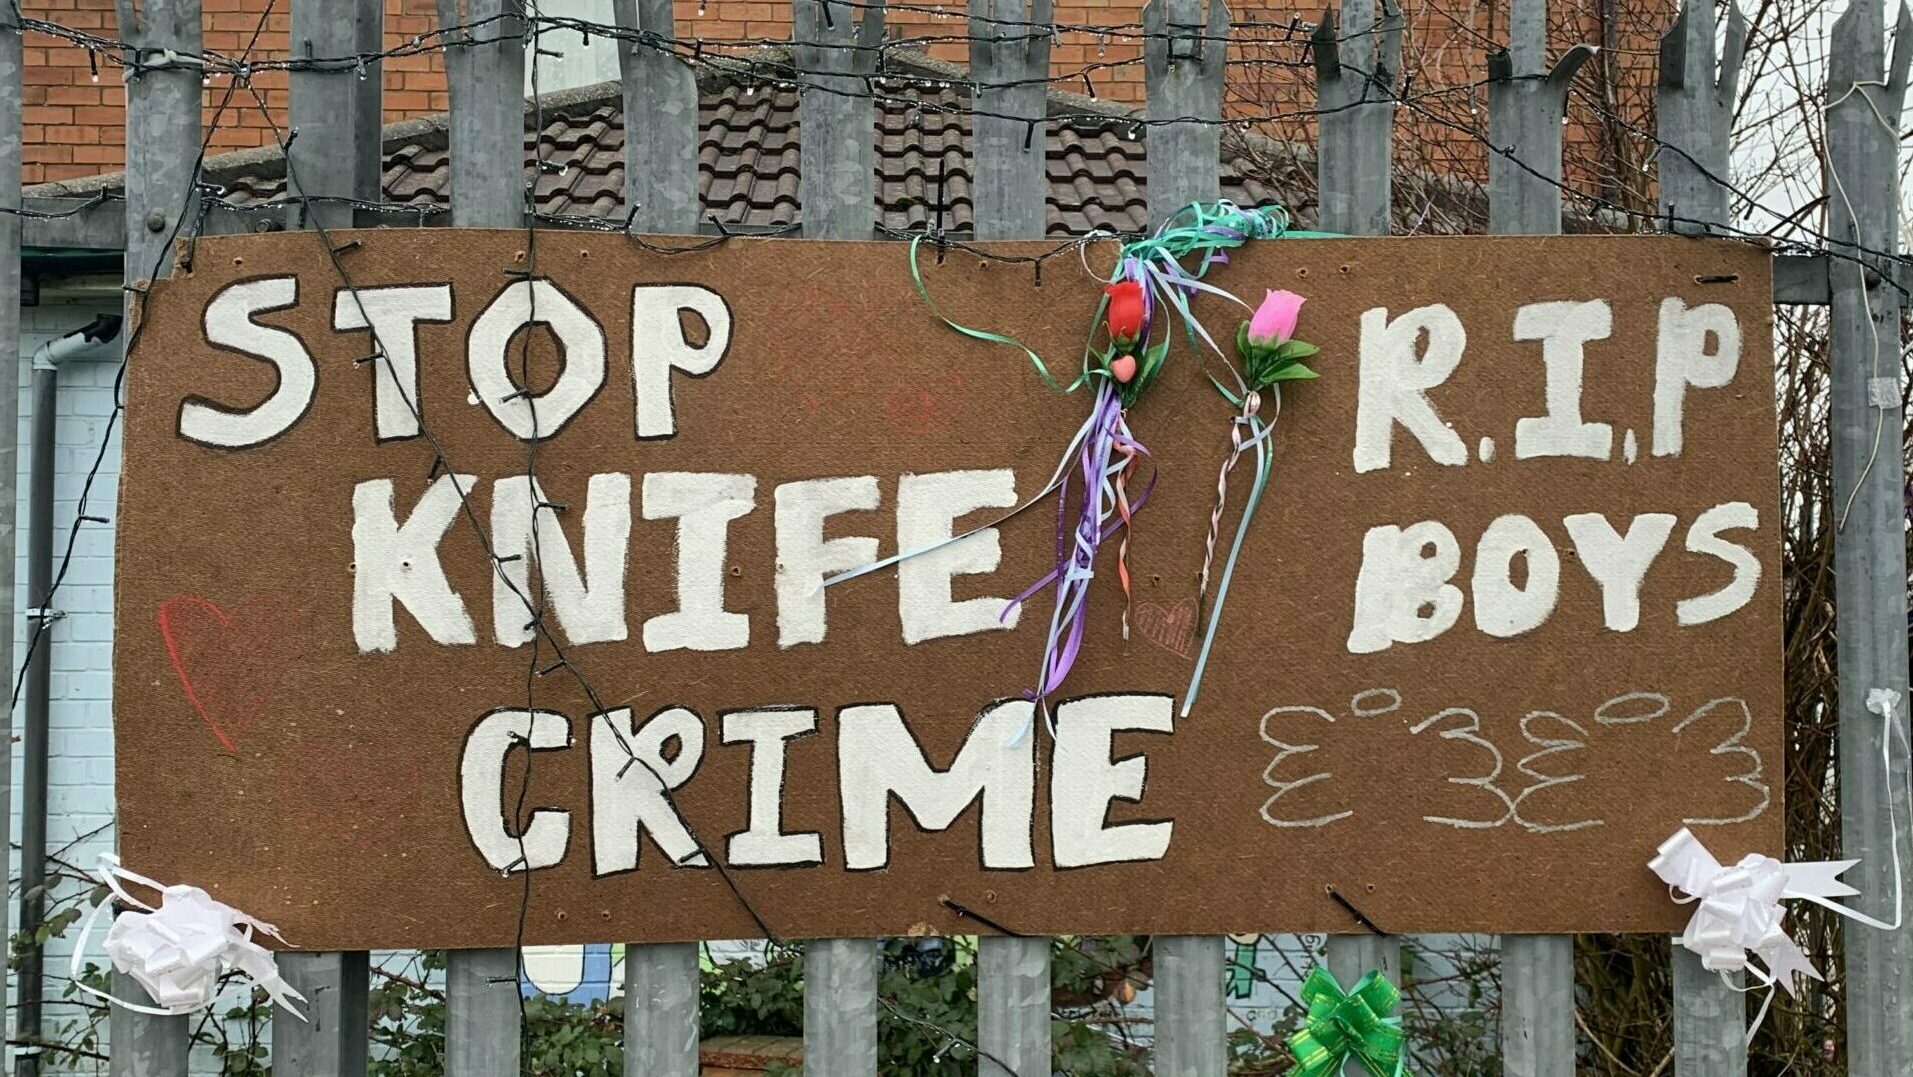 STOP
KNIFE
CRIME
R.I.P
BOYS